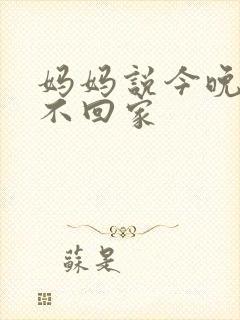 妈妈説今晚
不回家
蘇是